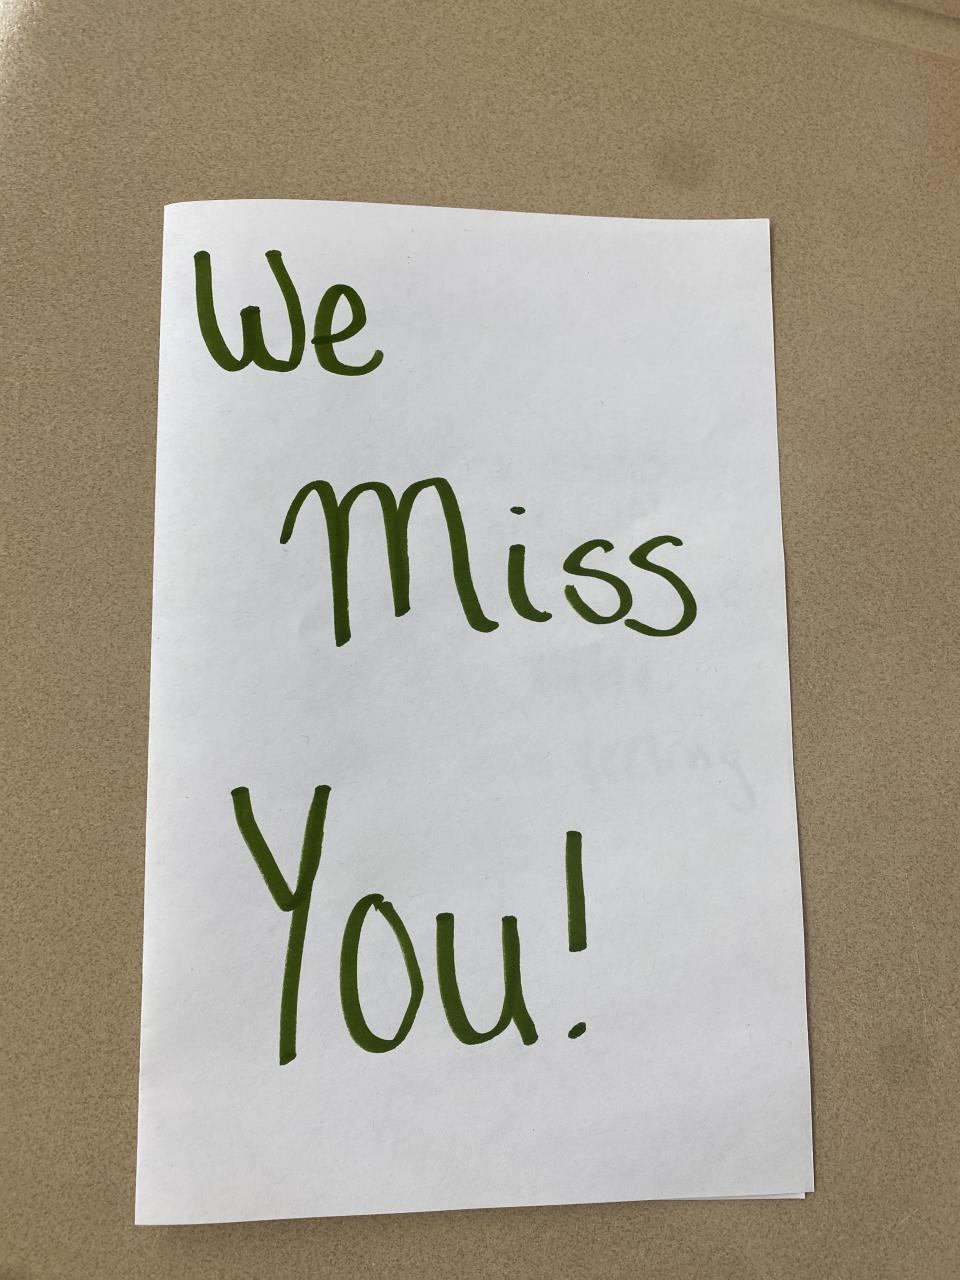 We
Miss
You!